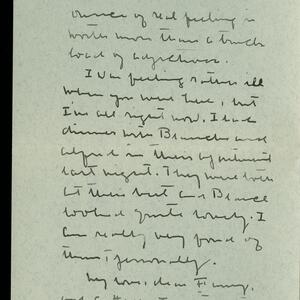 ounce of real feeling is
worth more than a truck
load of adjectives.
I was feeling rather ill
when you were here, but
I'm all right now. I had
dinner with Blanche and
Alfred in their apartment
last night. They were both
at their best and Blanche
looked quite lovely. I
am really very fond of
them, personally.
My love, dear Fanny,